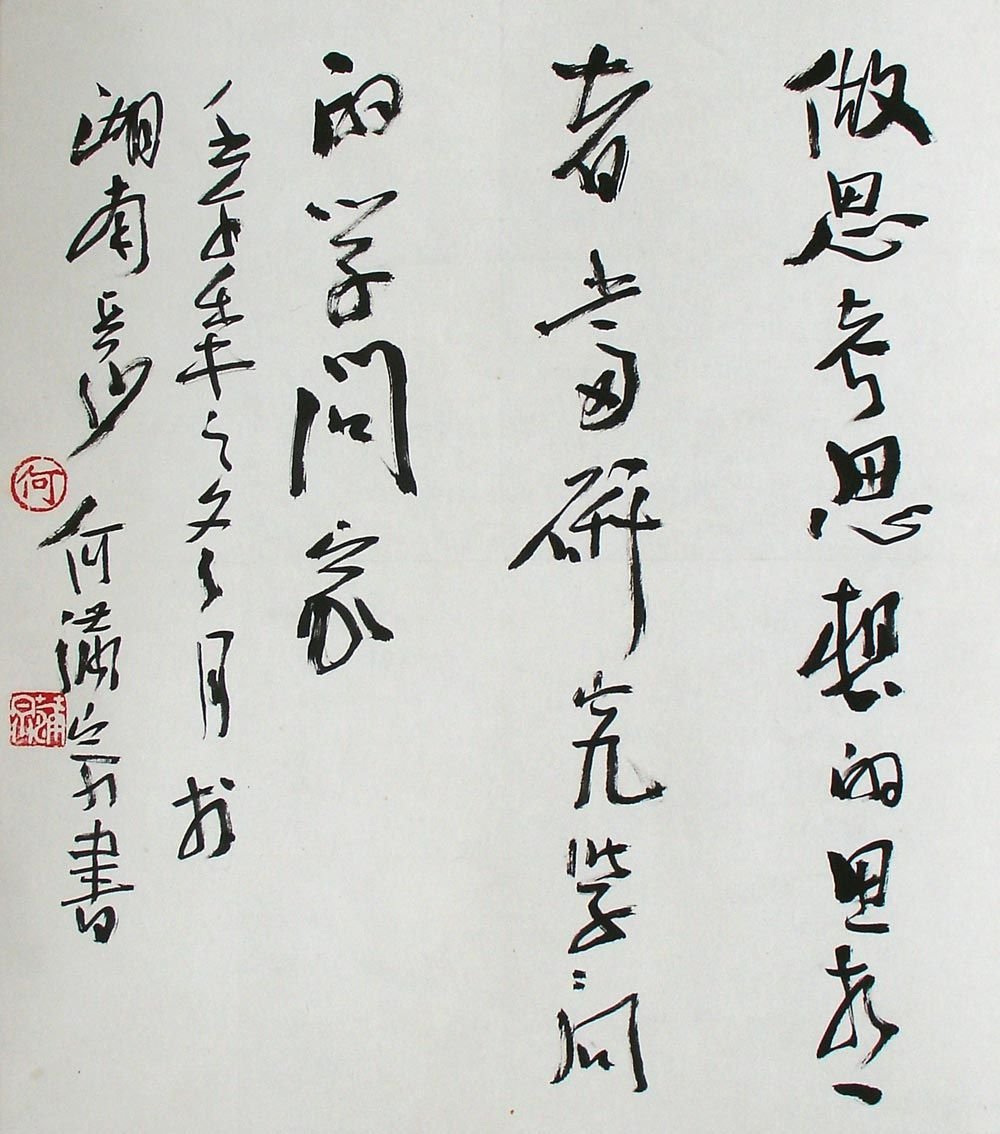 做思考思想的思考
者当研究学问
的学问家
壬午年之冬月於
湖南长沙 何满宗書
何